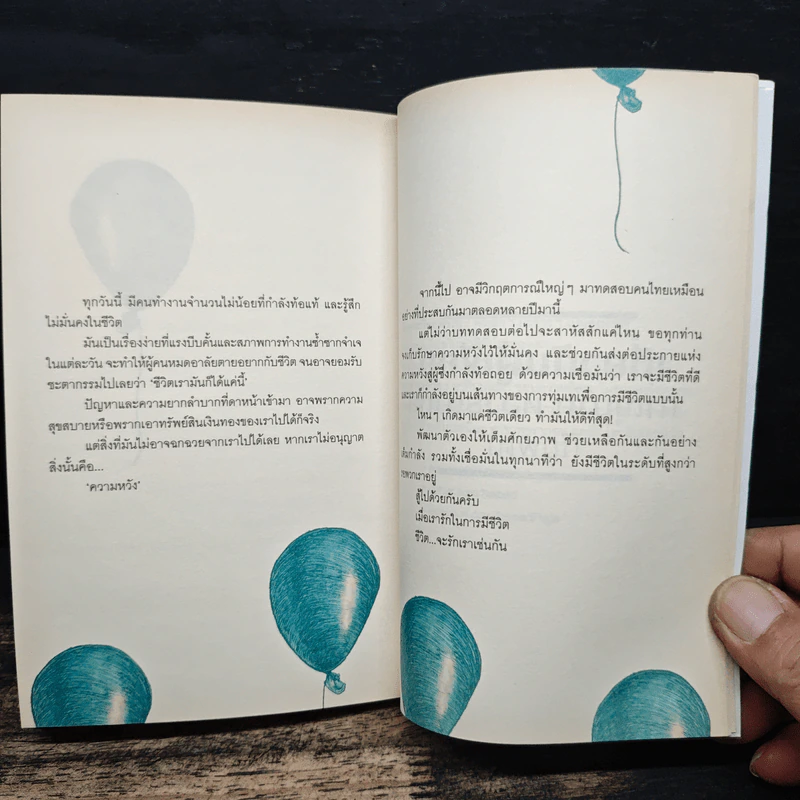 ทุกวันนี้ มีคนทำงานจำนวนไม่น้อยที่กำลังท้อแท้ และรู้สึก
ไม่มั่นคงในชีวิต
มันเป็นเรื่องง่ายที่แรงบีบคั้นและสภาพการทำงานซ้ำซากจำเจ
ในแต่ละวัน จะทำให้ผู้คนหมดอาลัยตายอยากกับชีวิต จนอาจยอมรับ
ชะตากรรมไปเลยว่า 'ชีวิตเรามันก็ได้แค่นี้'
ปัญหาและความยากลำบากที่ดาหน้าเข้ามา อาจพรากความ
สุขสบายหรือพรากเอาทรัพย์สินเงินทองของเราไปได้ก็จริง
แต่สิ่งที่มันไม่อาจฉกฉวยจากเราไปได้เลย หากเราไม่อนุญาต
สิ่งนั้นคือ...
'ความหวัง'
จากนี้ไป อาจมีวิกฤตการณ์ใหญ่ๆ มาทดสอบคนไทยเหมือน
อย่างที่ประสบกันมาตลอดหลายปีมานี้
แต่ไม่ว่าบททดสอบต่อไปจะสาหัสสักแค่ไหน ขอทุกท่าน
จงเก็บรักษาความหวังไว้ให้มั่นคง และช่วยกันส่งต่อประกายแห่ง
ความหวังสู่ผู้ซึ่งกำลังท้อถอย ด้วยความเชื่อมั่นว่า เราจะมีชีวิตที่ดี
และเราก็กำลังอยู่บนเส้นทางของการทุ่มเทเพื่อการมีชีวิตแบบนั้น
ไหนๆ เกิดมาแค่ชีวิตเดียว ทำมันให้ดีที่สุด!
พัฒนาตัวเองให้เต็มศักยภาพ ช่วยเหลือกันและกันอย่าง
เต็มกำลัง รวมทั้งเชื่อมั่นในทุกนาทีว่า ยังมีชีวิตในระดับที่สูงกว่า
พวกเราอยู่
สู้ไปด้วยกันครับ
เมื่อเรารักในการมีชีวิต
ชีวิต...จะรักเราเช่นกัน